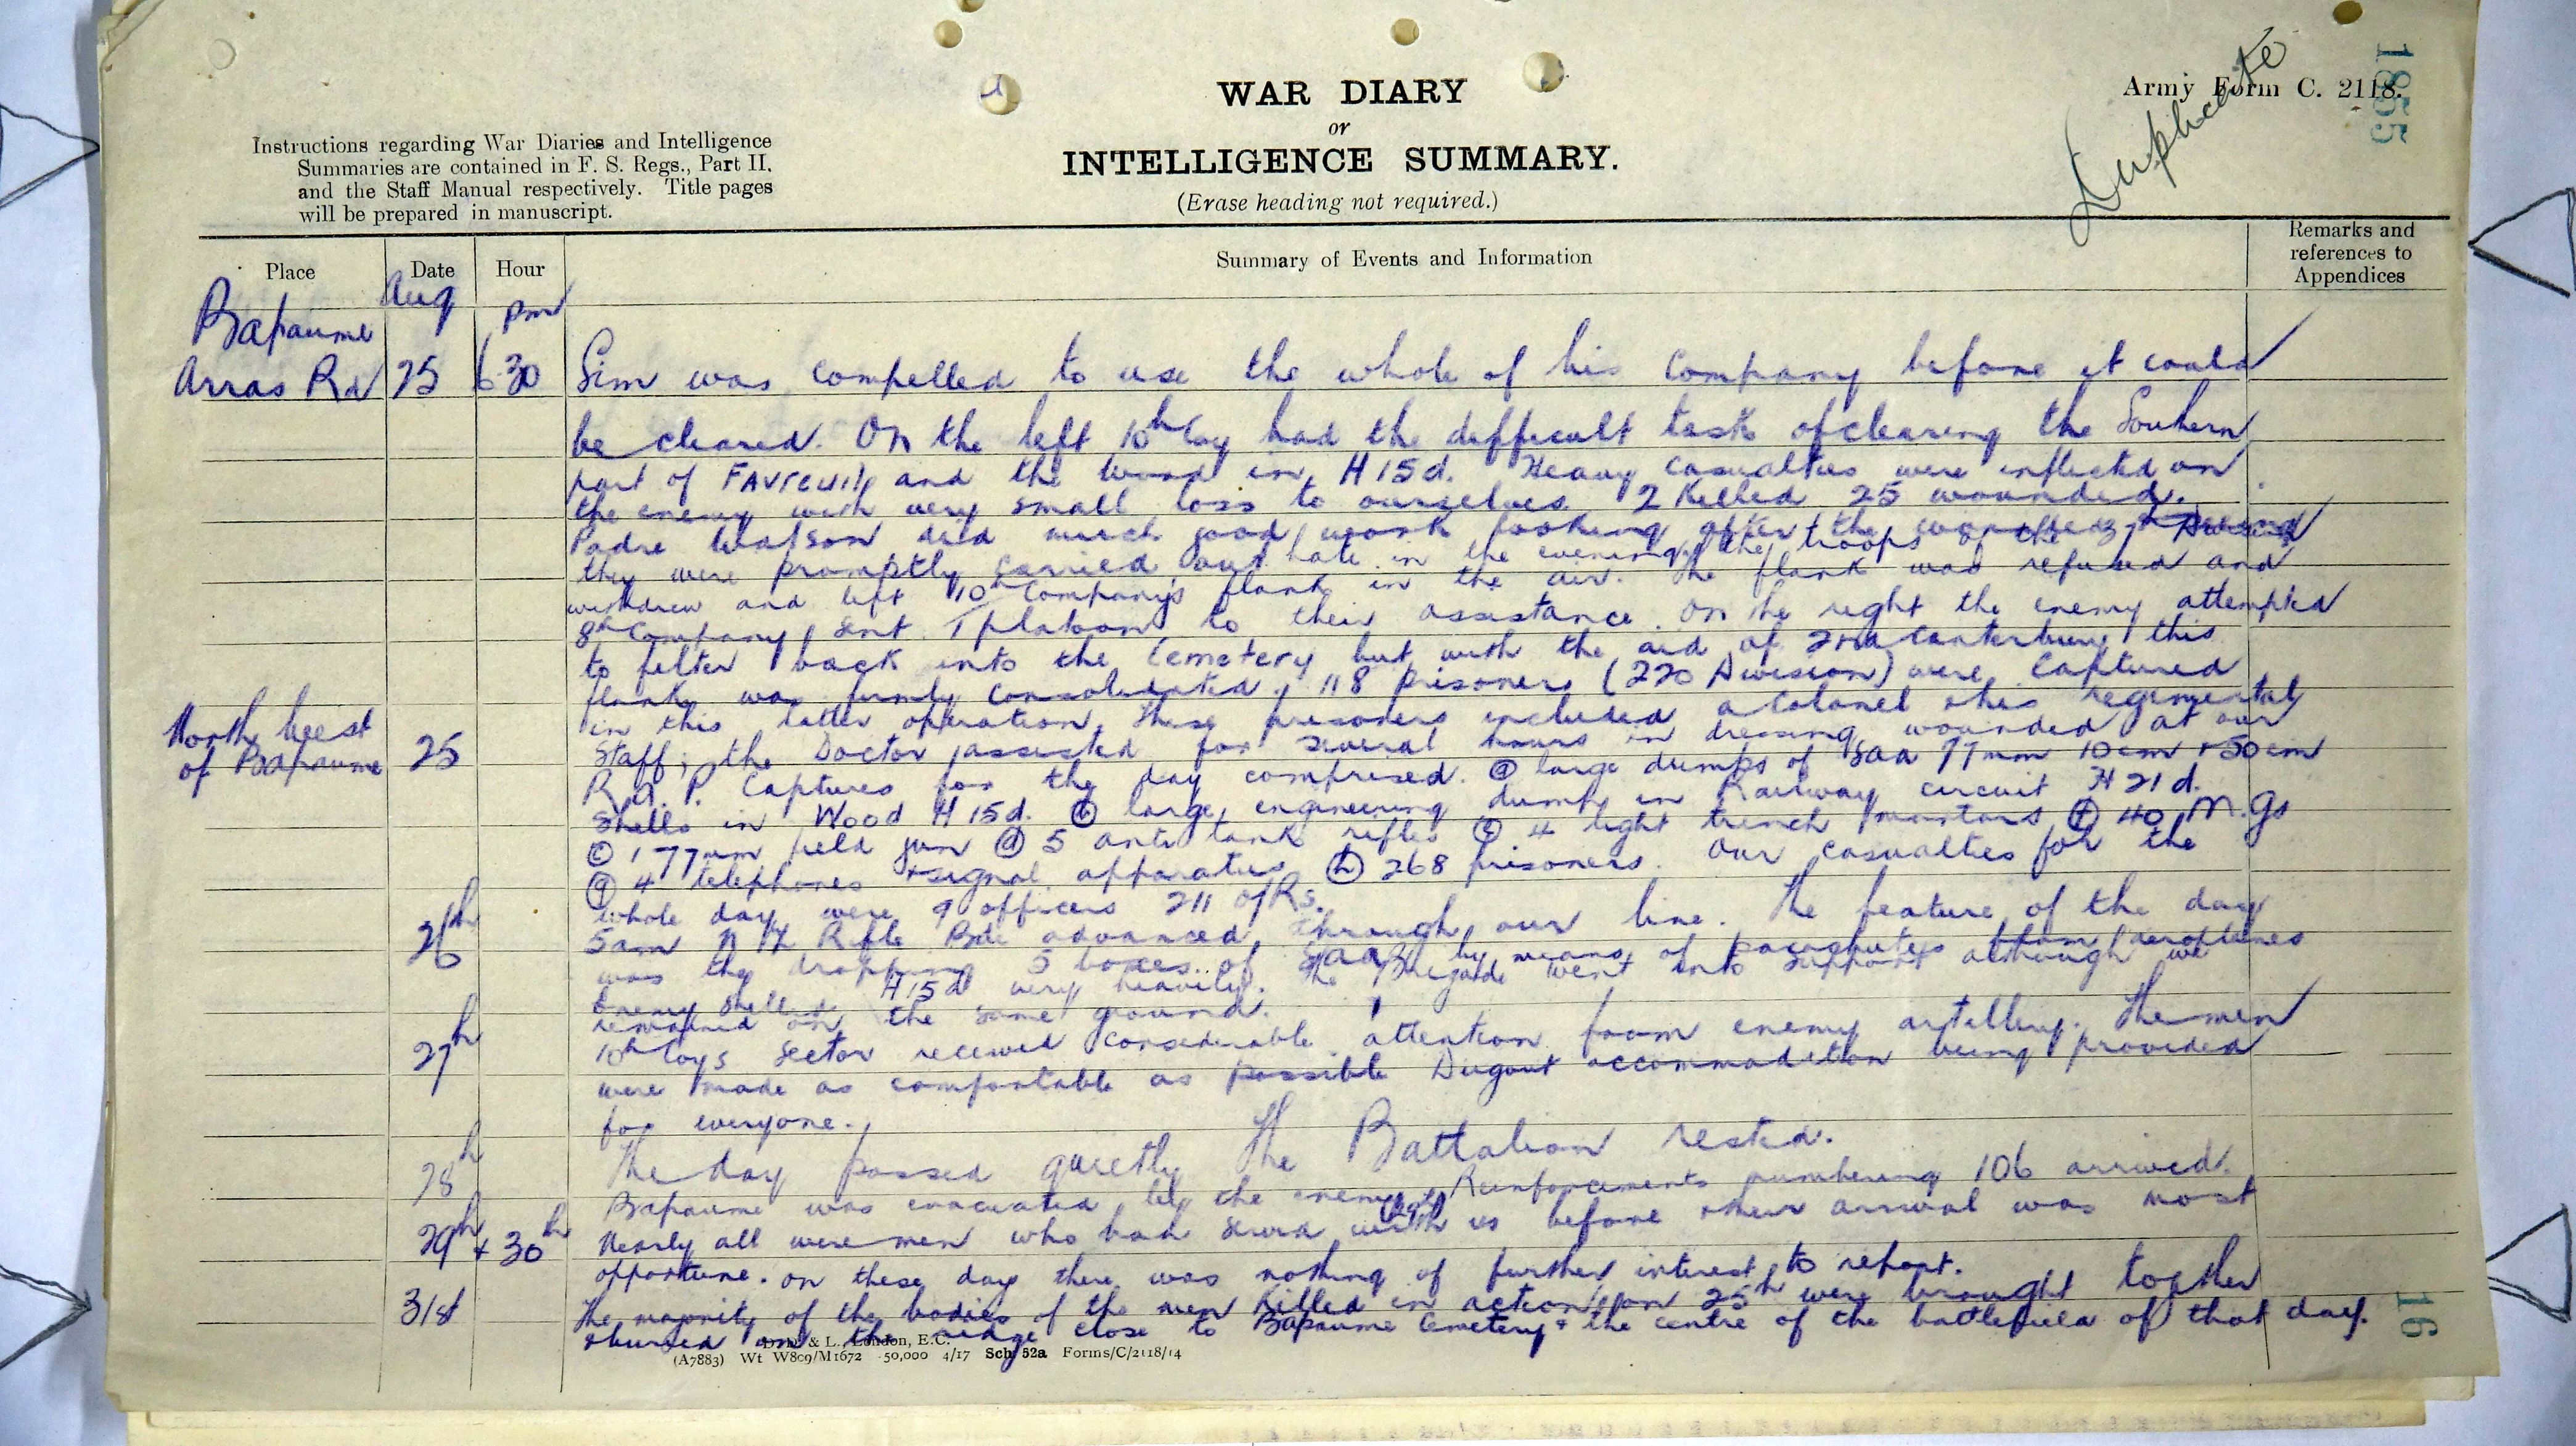 WAR DIARY
or
INTELLIGENCE SUMMARY.
(Erase heading not required.)
Army Form C. 2118.
Duplicate
1855
Instructions regarding War Diaries and Intelligence
Summaries are contained in F. S. Regs., Part II.
and the Staff Manual respectively. Title pages
will be prepared in manuscript.
Place
Date
Hour
Summary of Events and Information
Remarks and
references to
Appendices
Aug
pm
Bapaume
Arras Rd 25 6.30 Sim was compelled to use the whole of his Company before it could
be cleared. On the left 10th Coy had the difficult task of clearing the Southern
part of Favreuil and the wood in H 15 d. Heavy casualties were inflicted on
the enemy with very small loss to ourselves 2 killed 25 wounded.
Padre Watson did much good work looking after the wounded &
they were promptly carried out. Late in the evening the troops of the 37 Division
withdrew and left 10th Company's flank in the air. The flank was refused and
8th Company sent 1 platoon to their assistance. On the right the enemy attempted
to filter back into the Cemetery but with the aid of 2nd Canterbury this
flank was firmly consolidated. 118 prisoners (220 Division) were captured
in this latter operation. These prisoners included a Colonel & his regimental
North West
of Bapaume 25 Staff; the Doctor assisted for several hours in dressing wounded at our
R.A.P. Captures for the day comprised. (a) large dumps of Saa 77mm 10cm + 50cm
Shells in Wood H 15 d. (b) large engineering dump in Railway circuit H 21 d.
(c) 1 77mm field gun (d) 5 anti tank rifles (e) 4 light trench mortars (f) 40 M.Gs
(g) 4 telephones & signal apparatus (h) 268 prisoners. Our casualties for the
whole day were 9 officers 211 ofRs.
26th 5am N Z Rifle Bde advanced through our line. The feature of the day
was the dropping 5 boxes of Saa by means of parachutes from aeroplanes
Enemy shelled H15d very heavily. The Brigade went into support although we
remained on the same ground.
27th 10th Coys sector received considerable attention from enemy artillery. The men
were made as comfortable as possible Dugout accommodation being provided
for everyone.
28th The day passed quietly The Battalion rested.
29th + 30th Bapaume was evacuated by the enemy. Reinforcements numbering 106 arrived.
Nearly all were men who had served with us before & their arrival was most
opportune. On these day there was nothing of further interest to report.
31st The majority of the bodies of the men killed in action on 25th were brought together
& buried on the ridge close to Bapaume Cemetery & the centre of the battlefield of that day.
D. D. & L., London, E.C.
(A7883) Wt W809/M1672 50,000 4/17 Sch. 52a Forms/C/2118/14
16